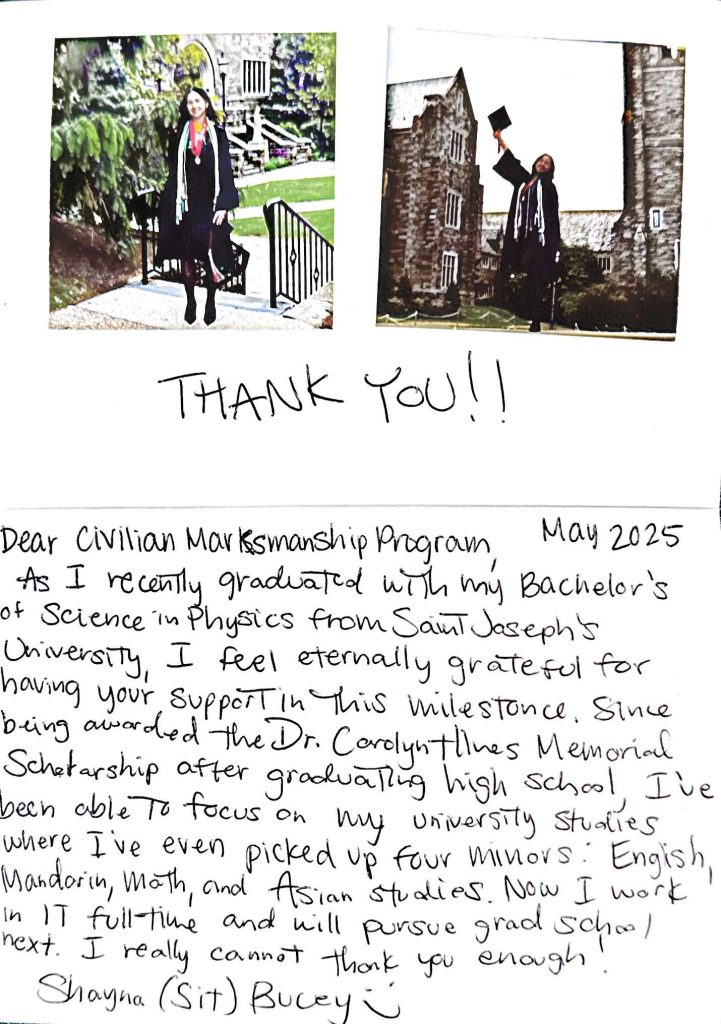 THANK YOU!!
Dear Civilian Marksmanship Program, May 2025
As I recently graduated with my Bachelor's
of Science in Physics from Saint Joseph's
University, I feel eternally grateful for
having your support in this milestonce. Since
being awarded the Dr. Carolyn Hines Memorial
Scholarship after graduating high school, I've
been able to focus on my university studies
where I've even picked up four minors: Engish,
Mandarin, Math, and Asian studies. Now I work
in IT full-time and will pursue grad school
next. I really cannot thank you enough!
Shayna (Sit) Bucey